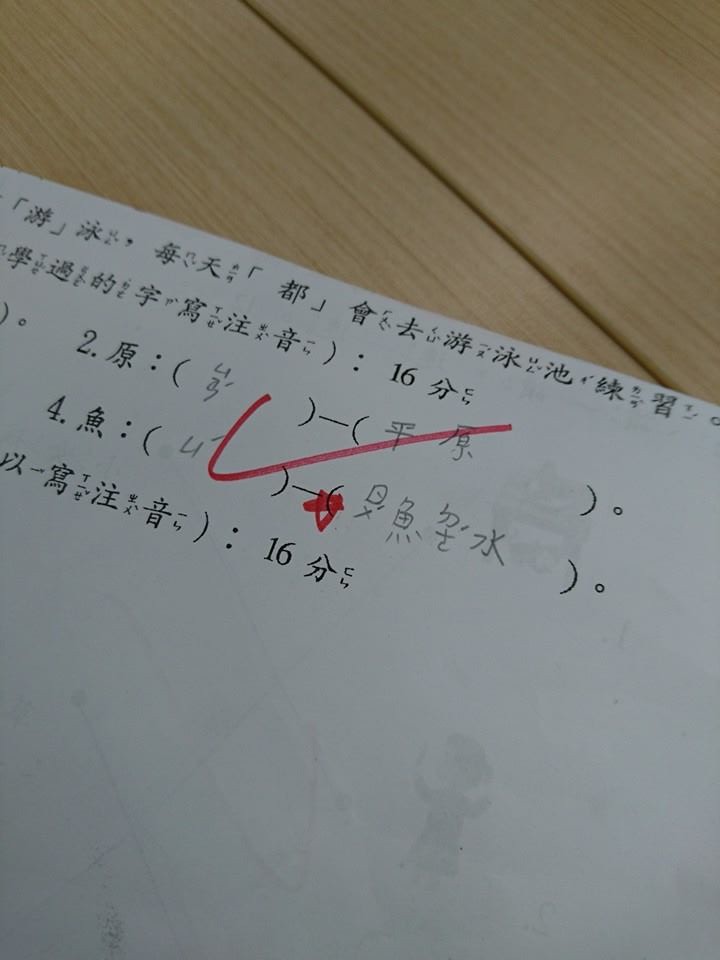 「游」泳，每天「都」會去游泳池練習。
學過的字寫注音)：16分
)。 2.原：( ㄩㄢˊ )—( 平原 )。
4.魚：( ㄩˊ )—( ㄖㄨˊ魚ㄉㄜˊ水 )。
以寫注音)：16分